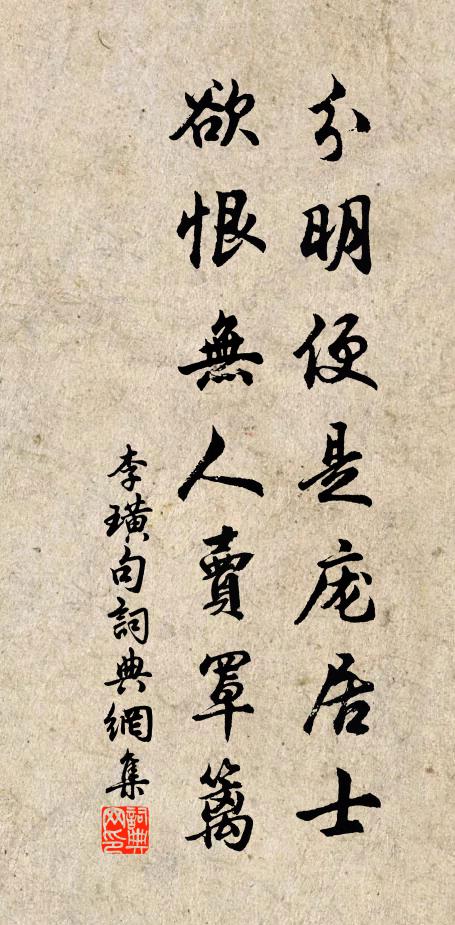 分明便是庞居士
欲恨無人賣罩篱
李璜句詞典網集
詞典网印